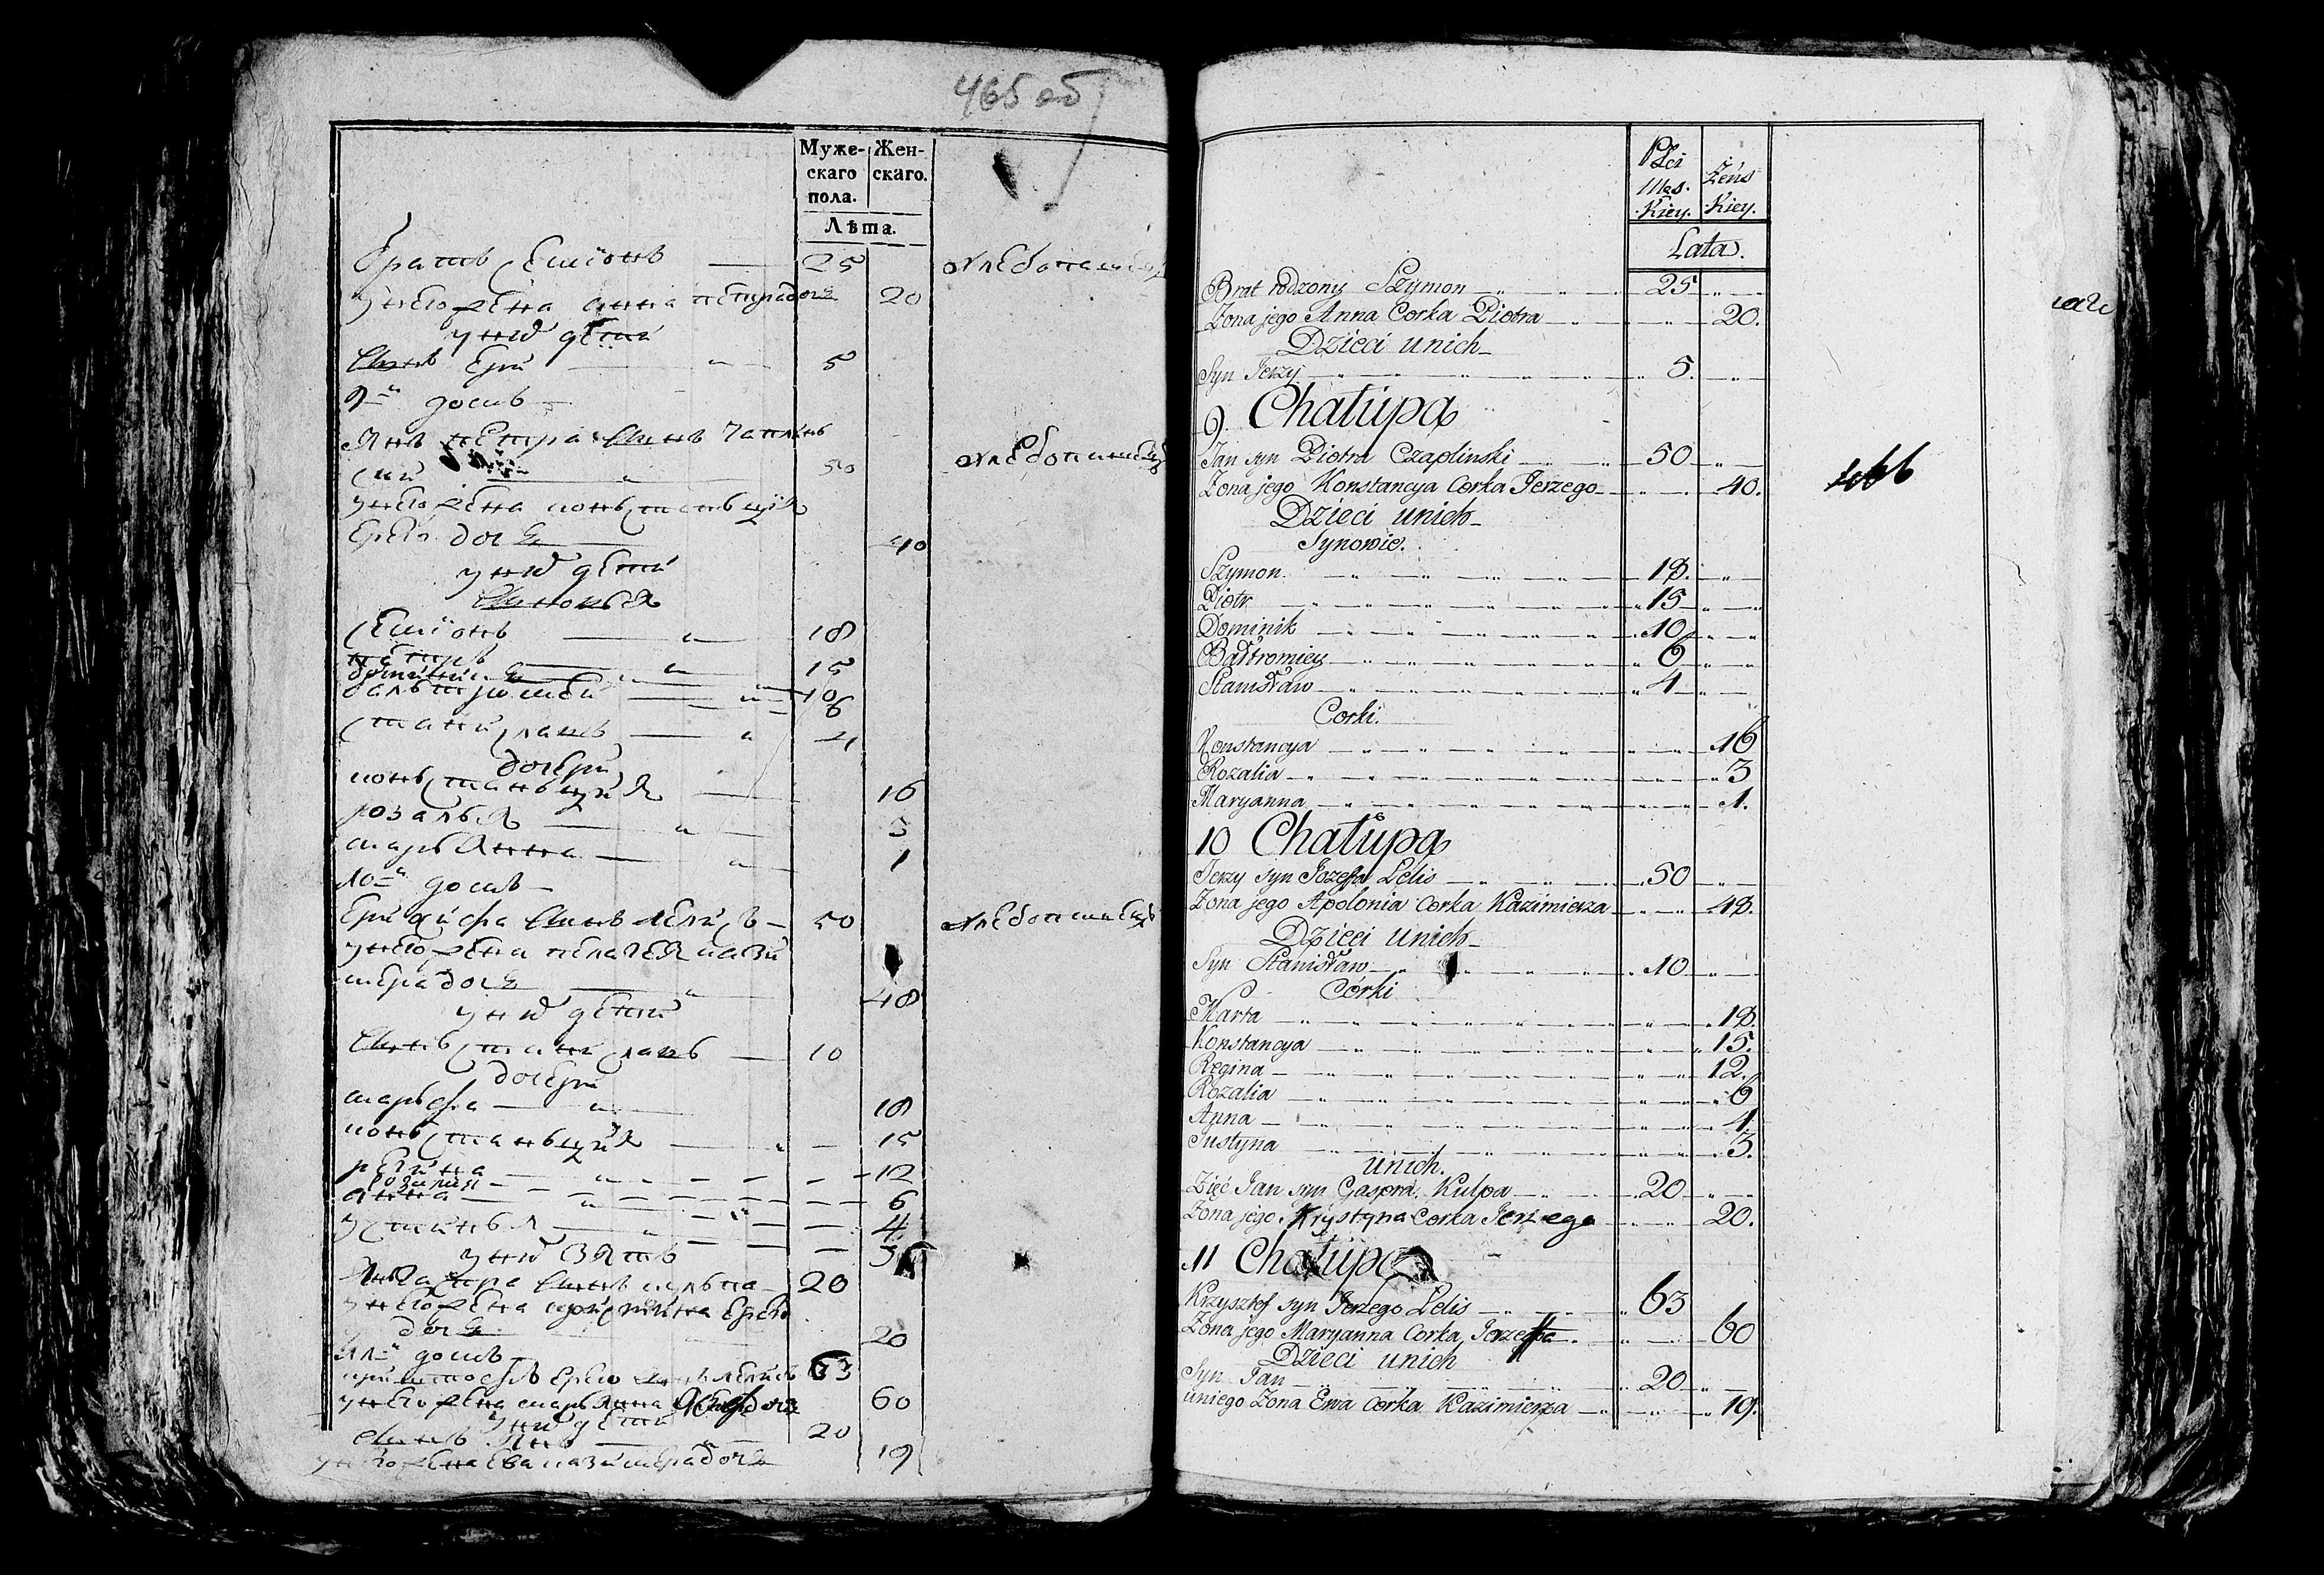 465 об
Муже- Жен-
скаго скаго.
пола.
Лѣта.
братъ семіонъ 25 хлебопашецъ
унего жена анна петрадочь 20
уних дети
сынъ ерги 5
9й домъ
Янъ петра сынъ чаплин
ский 50 хлебопашецъ
унего жена констанція
ерего дочь 40
уних дети
сыновья
семіонъ 18
петръ 15
доминикъ 10
балтромей 6
станиславъ 4
дочери
констанция 16
розалья 3
марьянна 1
10й домъ
50 хлебопашецъ
унего жена пелагея кази
мера дочь 48
уних дети
сынъ станиславъ 10
дочери
марьфа 18
констанция 15
регина 12
розалия 6
анна 4
устинья 3
уних зять
сынъ кульпа 20
унего жена кристина ерего
дочь 20
11й домъ
63
унего жена марьянна 60
уних дети
сынъ Янъ 20
унего жена ева казимера дочь 19
Płci Żeńs
Męs. kiey.
kiey.
Lata.
Brat rodzony Szymon 25
Żona jego Anna Corka Piotra 20.
Dzieci unich
Syn Jerzy 5.
9 Chałupa
Jan syn Piotra Czaplinski 50
Żona jego Konstancya Corka Jerzego 40.
Dzieci unich
Synowie.
Szymon. 18.
Piotr 15
Dominik 10
Bałtromiey 6
Stanisław 4
Corki.
Konstancya 16
Rozalia 3
Maryanna 1.
10 Chałupa
Jerzy syn Jozefa Lelis 50
Żona jego Apolonia Corka Kazimierza 48.
Dzieci unich
Syn Stanisław 10
Córki
Marta 18.
Konstancya 15.
Regina 12.
Rozalia 6
Anna 4
Justyna 3.
unich.
Zięć Jan syn Gaspra Kulpa 20
Żona jego Krystyna Corka Jerzego 20.
11 Chałupa
Krzysztof syn Jerzego Lelis 63
Żona jego Maryanna Corka 60
Dzieci unich
Syn Jan 20
uniego Żona Ewa Corka Kazimierza 19.
466